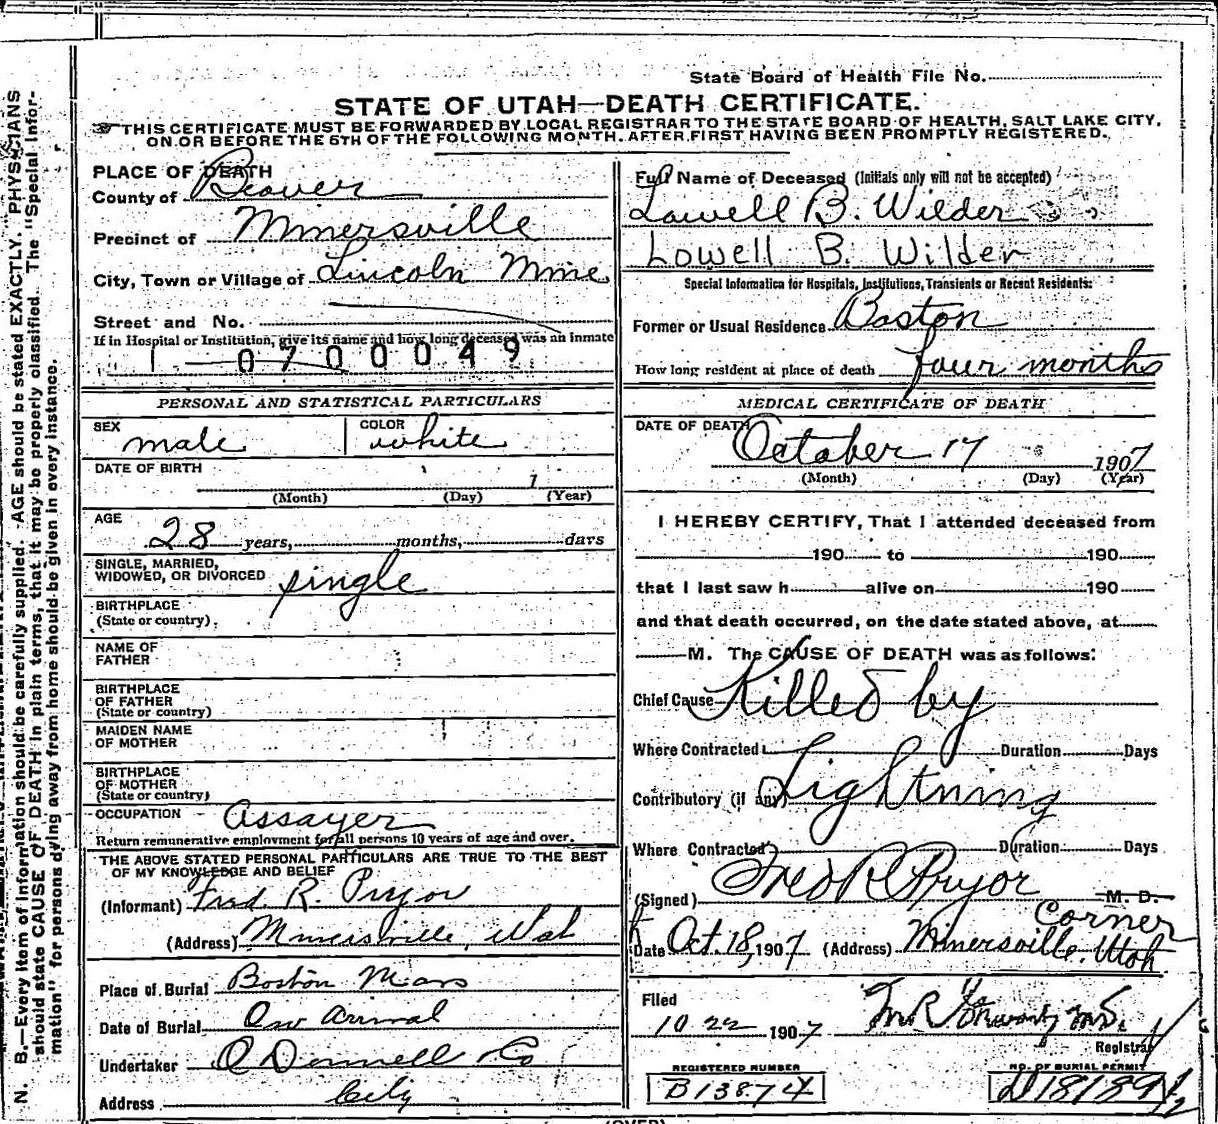 State Board of Health File No.
STATE OF UTAH—DEATH CERTIFICATE.
THIS CERTIFICATE MUST BE FORWARDED BY LOCAL REGISTRAR TO THE STATE BOARD OF HEALTH, SALT LAKE CITY,
ON OR BEFORE THE 5TH OF THE FOLLOWING MONTH, AFTER FIRST HAVING BEEN PROMPTLY REGISTERED.
N. B.—Every item of information should be carefully supplied. AGE should be stated EXACTLY. PHYSICIANS
should state CAUSE OF DEATH in plain terms, that it may be properly classified. The "Special Infor-
mation" for persons dying away from home should be given in every instance.
PLACE OF DEATH
County of Beaver
Precinct of Minersville
City, Town or Village of Lincoln Mine
Street and No.
If in Hospital or Institution, give its name and how long deceased was an inmate
1 0700049
PERSONAL AND STATISTICAL PARTICULARS
SEX male COLOR white
DATE OF BIRTH 1
(Month) (Day) (Year)
AGE 28 years, months, days
SINGLE, MARRIED,
WIDOWED, OR DIVORCED single
BIRTHPLACE
(State or country)
NAME OF
FATHER
BIRTHPLACE
OF FATHER
(State or country)
MAIDEN NAME
OF MOTHER
BIRTHPLACE
OF MOTHER
(State or country)
OCCUPATION assayer
Return remunerative employment for all persons 10 years of age and over.
THE ABOVE STATED PERSONAL PARTICULARS ARE TRUE TO THE BEST
OF MY KNOWLEDGE AND BELIEF
(Informant) Fred. R. Pryor
(Address) Minersville, Utah
Place of Burial Boston Mass
Date of Burial On Arrival
Undertaker O Donnell & Co
Address City
Full Name of Deceased (Initials only will not be accepted)
Lowell B. Wilder
Lowell B. Wilder
Special Information for Hospitals, Institutions, Transients or Recent Residents:
Former or Usual Residence Boston
How long resident at place of death four months
MEDICAL CERTIFICATE OF DEATH
DATE OF DEATH October 17 1907
(Month) (Day) (Year)
I HEREBY CERTIFY, That I attended deceased from
190 to 190
that I last saw h alive on 190
and that death occurred, on the date stated above, at
M. The CAUSE OF DEATH was as follows:
Chief Cause Killed by
Where Contracted Duration Days
Contributory (if any) Lightning
Where Contracted Duration Days
(Signed) Fred R Pryor M. D.
Corner
Date Oct. 18, 1907 (Address) Minersville, Utah
Filed
10 22 1907
Registrar
REGISTERED NUMBER
B13874
NO. OF BURIAL PERMIT
D18189 1/2
(OVER)